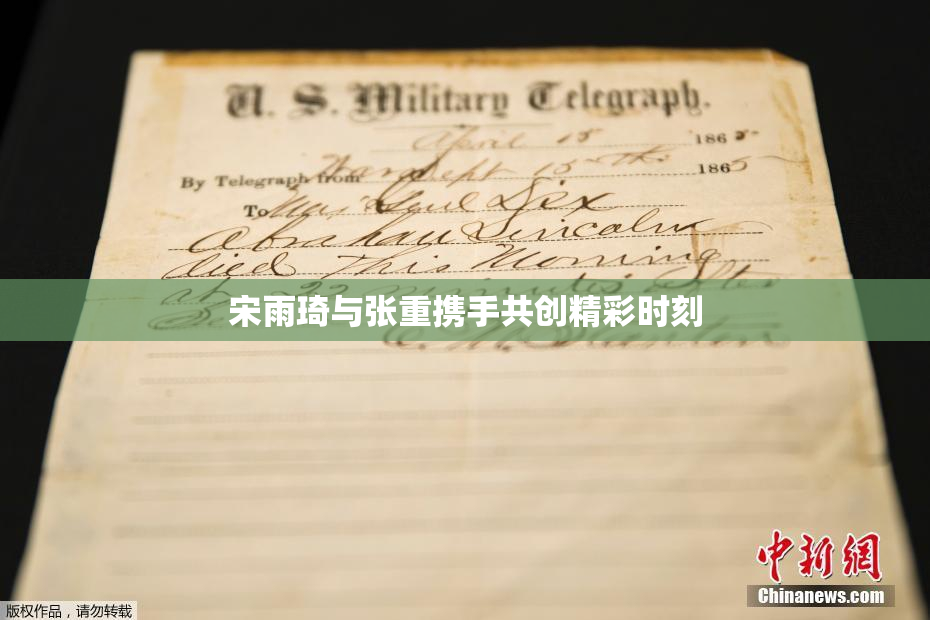 U. S. Military Telegraph.
April 15 1865
By Telegraph from War Dept 15th 1865
To Maj Genl Dix
Abraham Lincoln
died This Morning
at 22 minutes after
宋雨琦与张重携手共创精彩时刻
中新网
Chinanews.com
版权作品，请勿转载